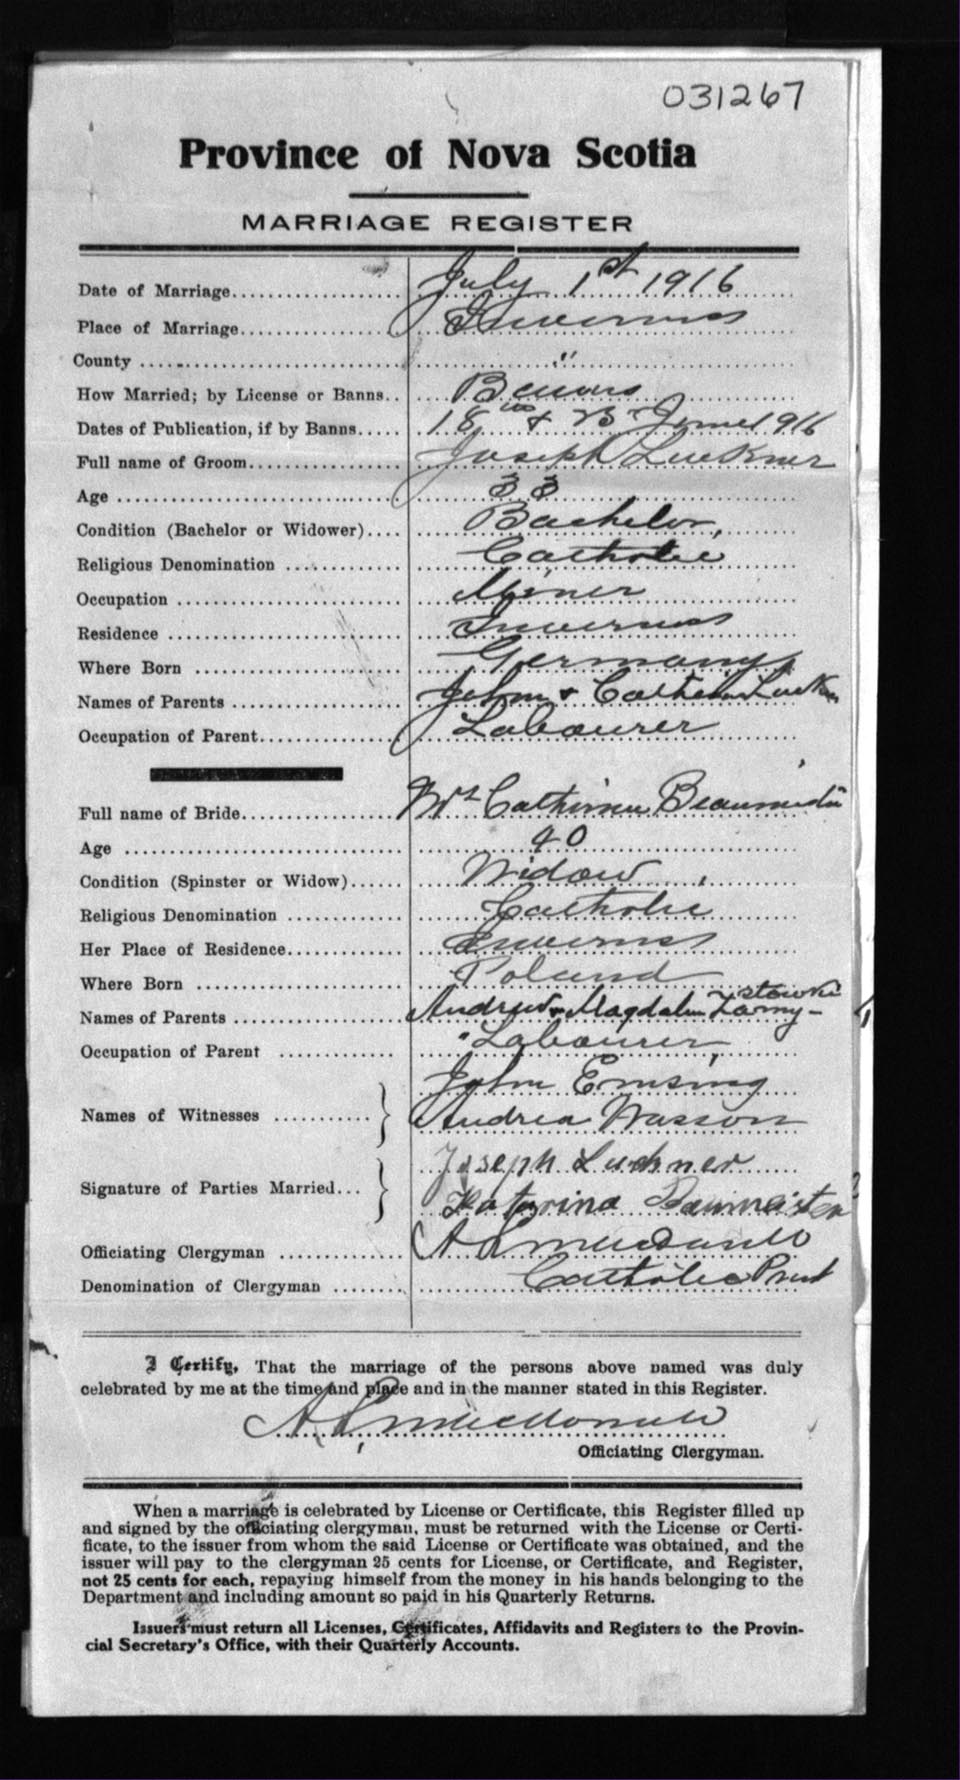 031267
Province of Nova Scotia
MARRIAGE REGISTER
Date of Marriage July 1st 1916
Place of Marriage Inverness
County "
How Married; by License or Banns Banns
Dates of Publication, if by Banns 18 & June 1916
Full name of Groom Joseph Lueckner
Age 33
Condition (Bachelor or Widower) Bachelor
Religious Denomination Catholic
Occupation Miner
Residence Inverness
Where Born Germany
Names of Parents John &
Occupation of Parent Labourer
Full name of Bride Mrs
Age 40
Condition (Spinster or Widow) Widow
Religious Denomination Catholic
Her Place of Residence Inverness
Where Born Poland
Names of Parents Andrew & Magdalen
Occupation of Parent Labourer
Names of Witnesses John Emsing
Andrea Wasson
Signature of Parties Married Joseph Luckner
Katarina Baumeister
Officiating Clergyman A L MacDonald
Denomination of Clergyman Catholic Priest
I Certify, That the marriage of the persons above named was duly
celebrated by me at the time and place and in the manner stated in this Register.
A L MacDonald
Officiating Clergyman.
When a marriage is celebrated by License or Certificate, this Register filled up
and signed by the officiating clergyman, must be returned with the License or Certi-
ficate, to the issuer from whom the said License or Certificate was obtained, and the
issuer will pay to the clergyman 25 cents for License, or Certificate, and Register,
not 25 cents for each, repaying himself from the money in his hands belonging to the
Department and including amount so paid in his Quarterly Returns.
Issuers must return all Licenses, Certificates, Affidavits and Registers to the Provin-
cial Secretary's Office, with their Quarterly Accounts.